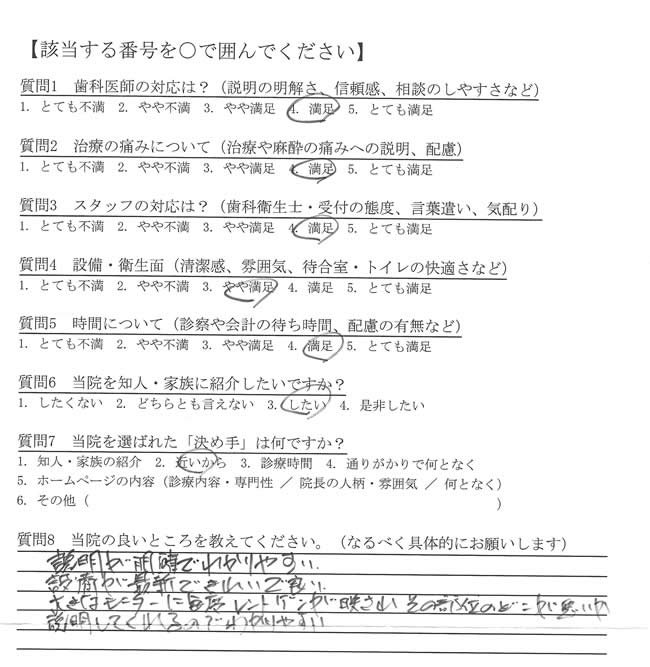 【該当する番号を○で囲んでください】
質問1 歯科医師の対応は？（説明の明解さ、信頼感、相談のしやすさなど）
1. とても不満 2. やや不満 3. やや満足 4. 満足 5. とても満足
質問2 治療の痛みについて（治療や麻酔の痛みへの説明、配慮）
1. とても不満 2. やや不満 3. やや満足 4. 満足 5. とても満足
質問3 スタッフの対応は？（歯科衛生士・受付の態度、言葉遣い、気配り）
1. とても不満 2. やや不満 3. やや満足 4. 満足 5. とても満足
質問4 設備・衛生面（清潔感、雰囲気、待合室・トイレの快適さなど）
1. とても不満 2. やや不満 3. やや満足 4. 満足 5. とても満足
質問5 時間について（診察や会計の待ち時間、配慮の有無など）
1. とても不満 2. やや不満 3. やや満足 4. 満足 5. とても満足
質問6 当院を知人・家族に紹介したいですか？
1. したくない 2. どちらとも言えない 3. したい 4. 是非したい
質問7 当院を選ばれた「決め手」は何ですか？
1. 知人・家族の紹介 2. 近いから 3. 診療時間 4. 通りがかりで何となく
5. ホームページの内容（診療内容・専門性 ／ 院長の人柄・雰囲気 ／ 何となく）
6. その他（ ）
質問8 当院の良いところを教えてください。（なるべく具体的にお願いします）
説明が明瞭でわかりやすい
設備が最新できれいで良い
大きなモニターに毎度レントゲンが映され その部位のどこが悪いか
説明してくれるのでわかりやすい